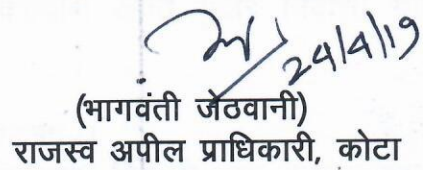 24/4/19
(भागवंती जेठवानी)
राजस्व अपील प्राधिकारी, कोटा